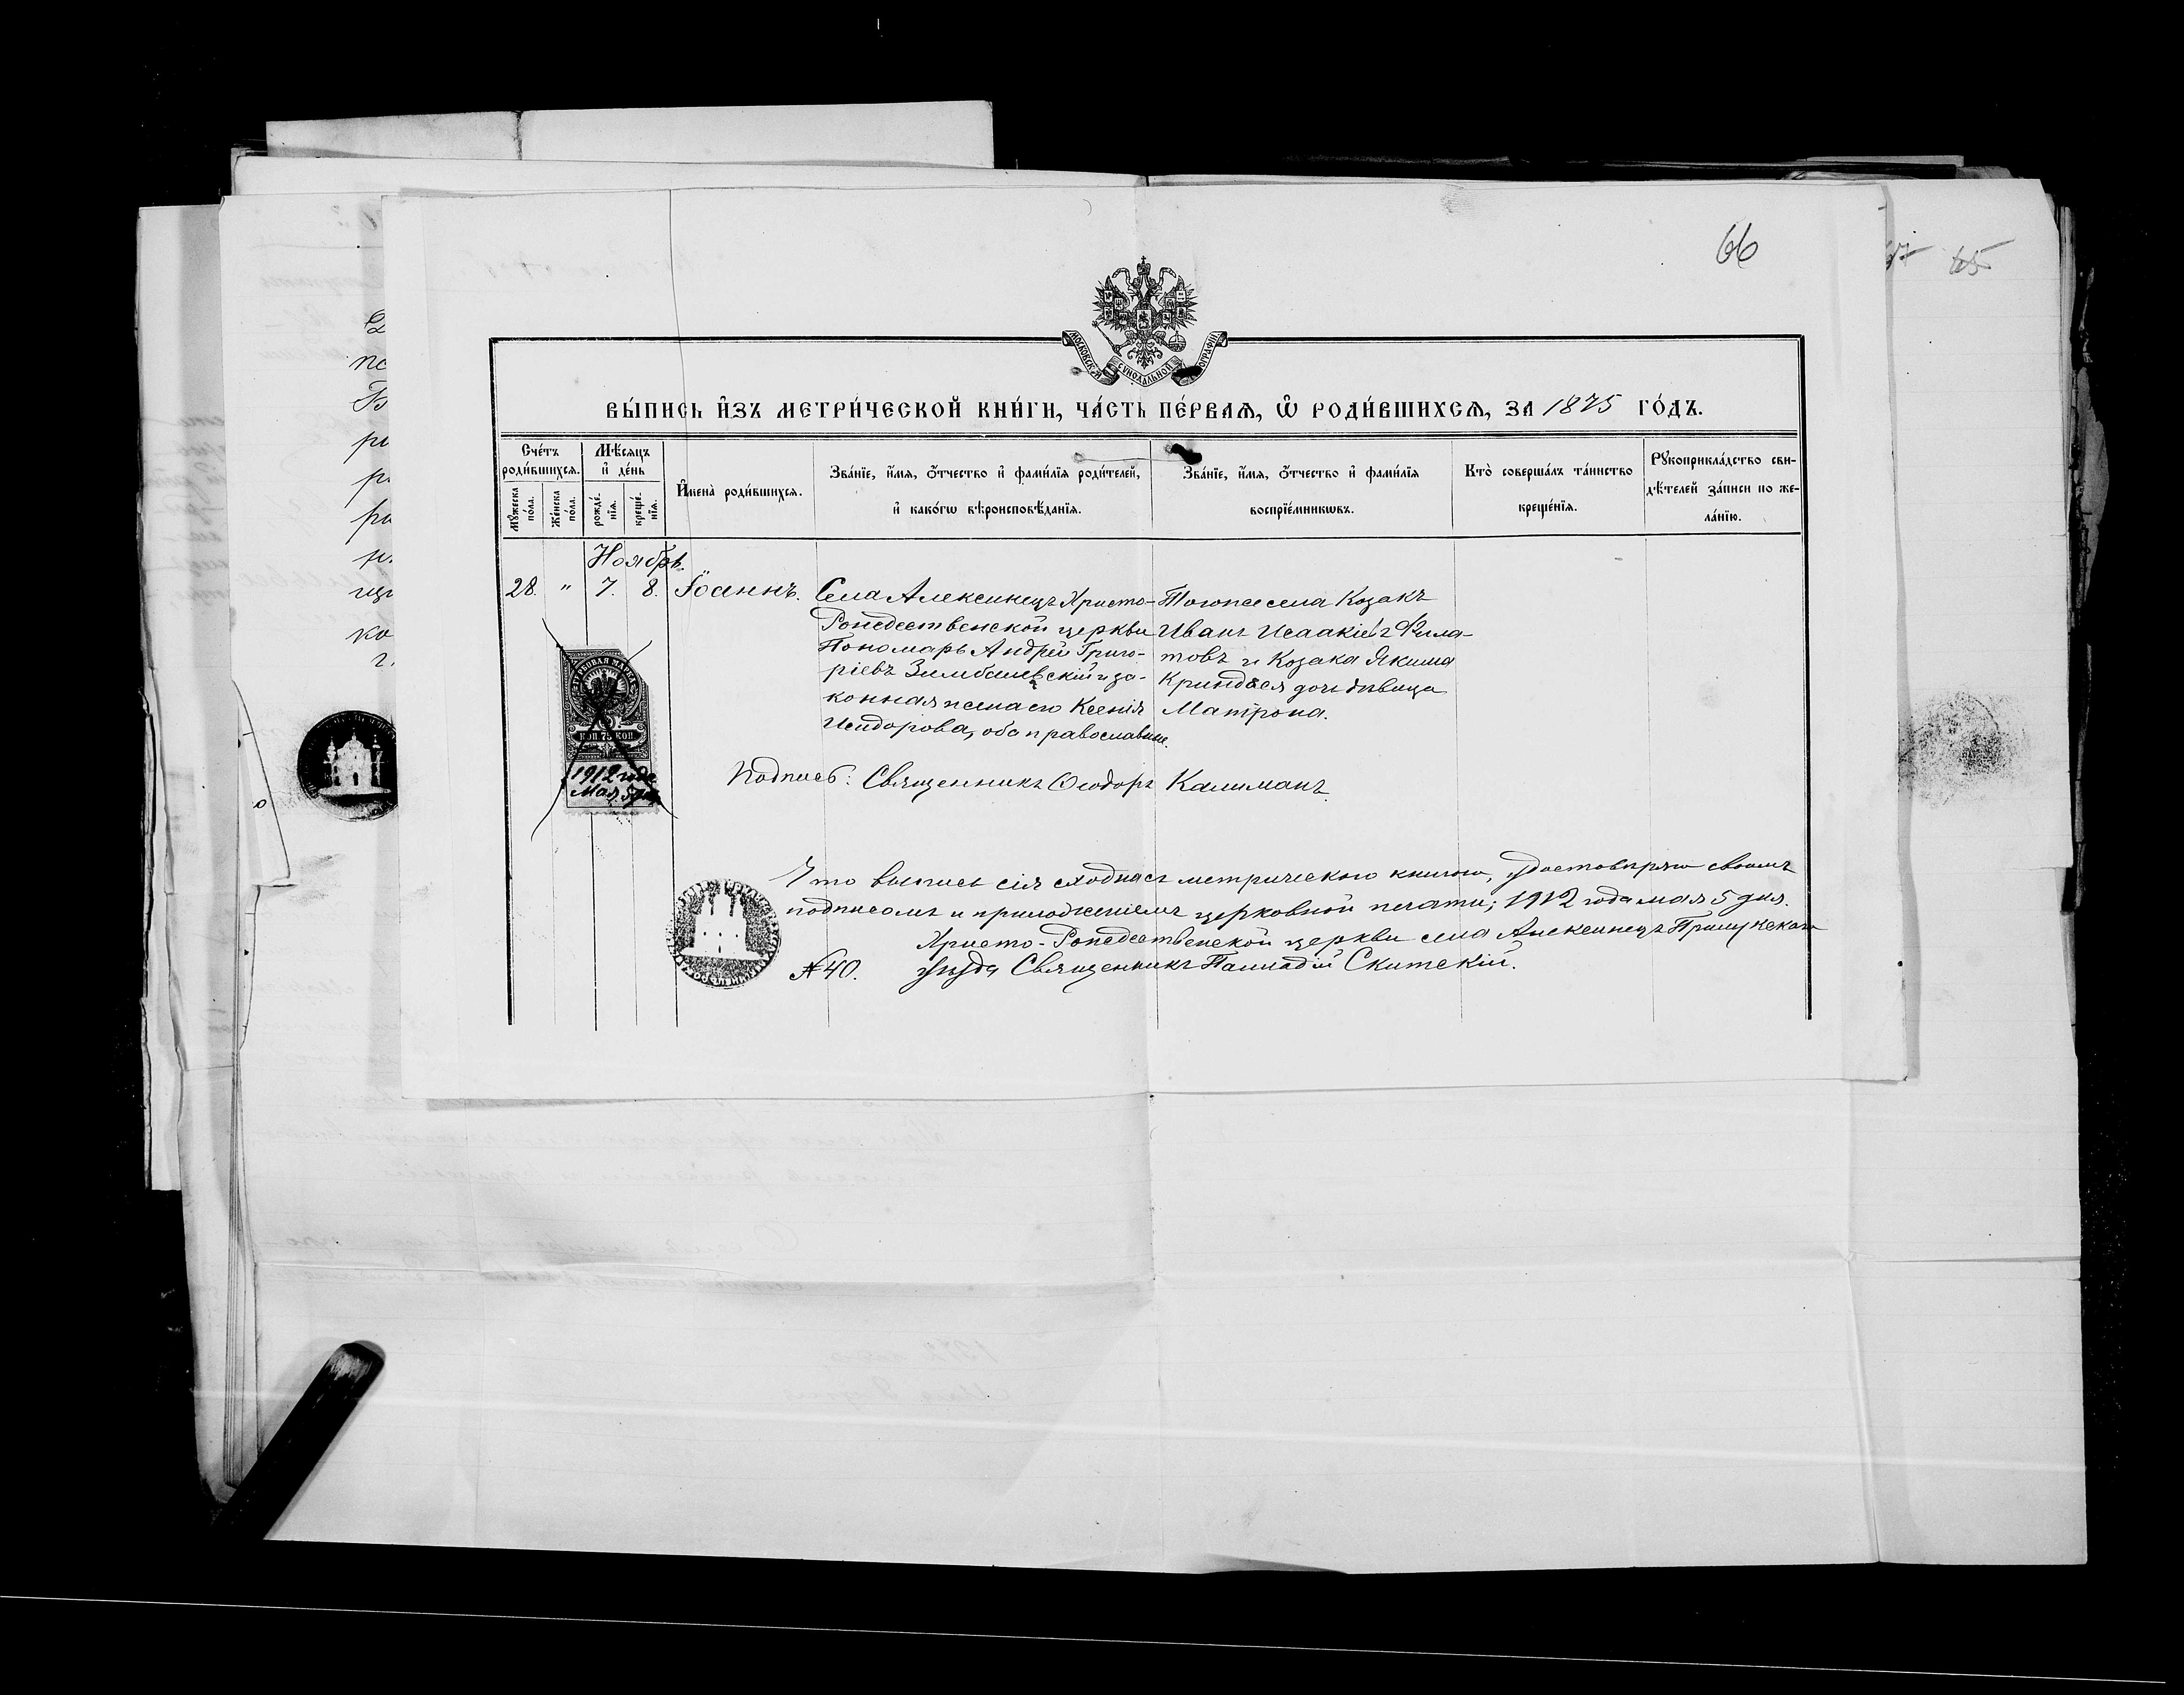 66
65
МОСКОВСКОЙ СѴНОДАЛЬНОЙ ТѴПОГРАФІИ
ВЫ́ПИСЬ И҆ЗЪ МЕТРИ́ЧЕСКОЙ КНИ́ГИ, ЧА́СТЬ ПЕ́РВАѦ, Ѡ҆ РОДИ́ВШИХСѦ, ЗА 1875 ГО́ДЪ.
Сче́тъ роди́вшихсѧ.
Мѣ́сѧцъ и҆ де́нь
Мꙋ́жеска по́ла.
Же́нска по́ла.
рожде́нїѧ.
креще́нїѧ.
И҆мена̀ роди́вшихсѧ.
Зва́нїе, и҆́мѧ, ѻ҆́тчество и҆ фами́лїѧ роди́телей,
и҆ како́гѡ вѣроисповѣ́данїѧ.
Зва́нїе, и҆́мѧ, ѻ҆́тчество и҆ фами́лїѧ
воспрїе́мникѡвъ.
Кто̀ соверша́лъ та́инство
креще́нїѧ.
Рꙋкоприкла́дство сви-
дѣ́телей за́писи по же-
ла́нїю.
Ноябрь.
28. " 7. 8. Іоаннъ.
Села Алексинецъ Христо-
Рождественской церкви
Пономарь Андрей Григо-
ріевъ Зимбалевскій и за-
конная жена его Ксенія
Исидорова, оба православные.
Того же села Козакъ
Иванъ Исаакіевъ Фила-
товъ и Козака Якима
Криндася дочь дѣвица
Матрона.
ГЕРБОВАЯ МАРКА
КОП. 75 КОП
1912 года
Мая 5 дня
Подписъ: Священникъ Ѳеодоръ Калиманъ.
Что выпись сія сходна съ метрическою книгою, удостовѣряю своимъ
подписомъ и приложеніемъ церковной печати; 1912 года мая 5 дня.
Христо-Рождественской церкви села Алексинецъ Прилукскаго
№ 40. уѣзда Священникъ Палладій Скитскій.